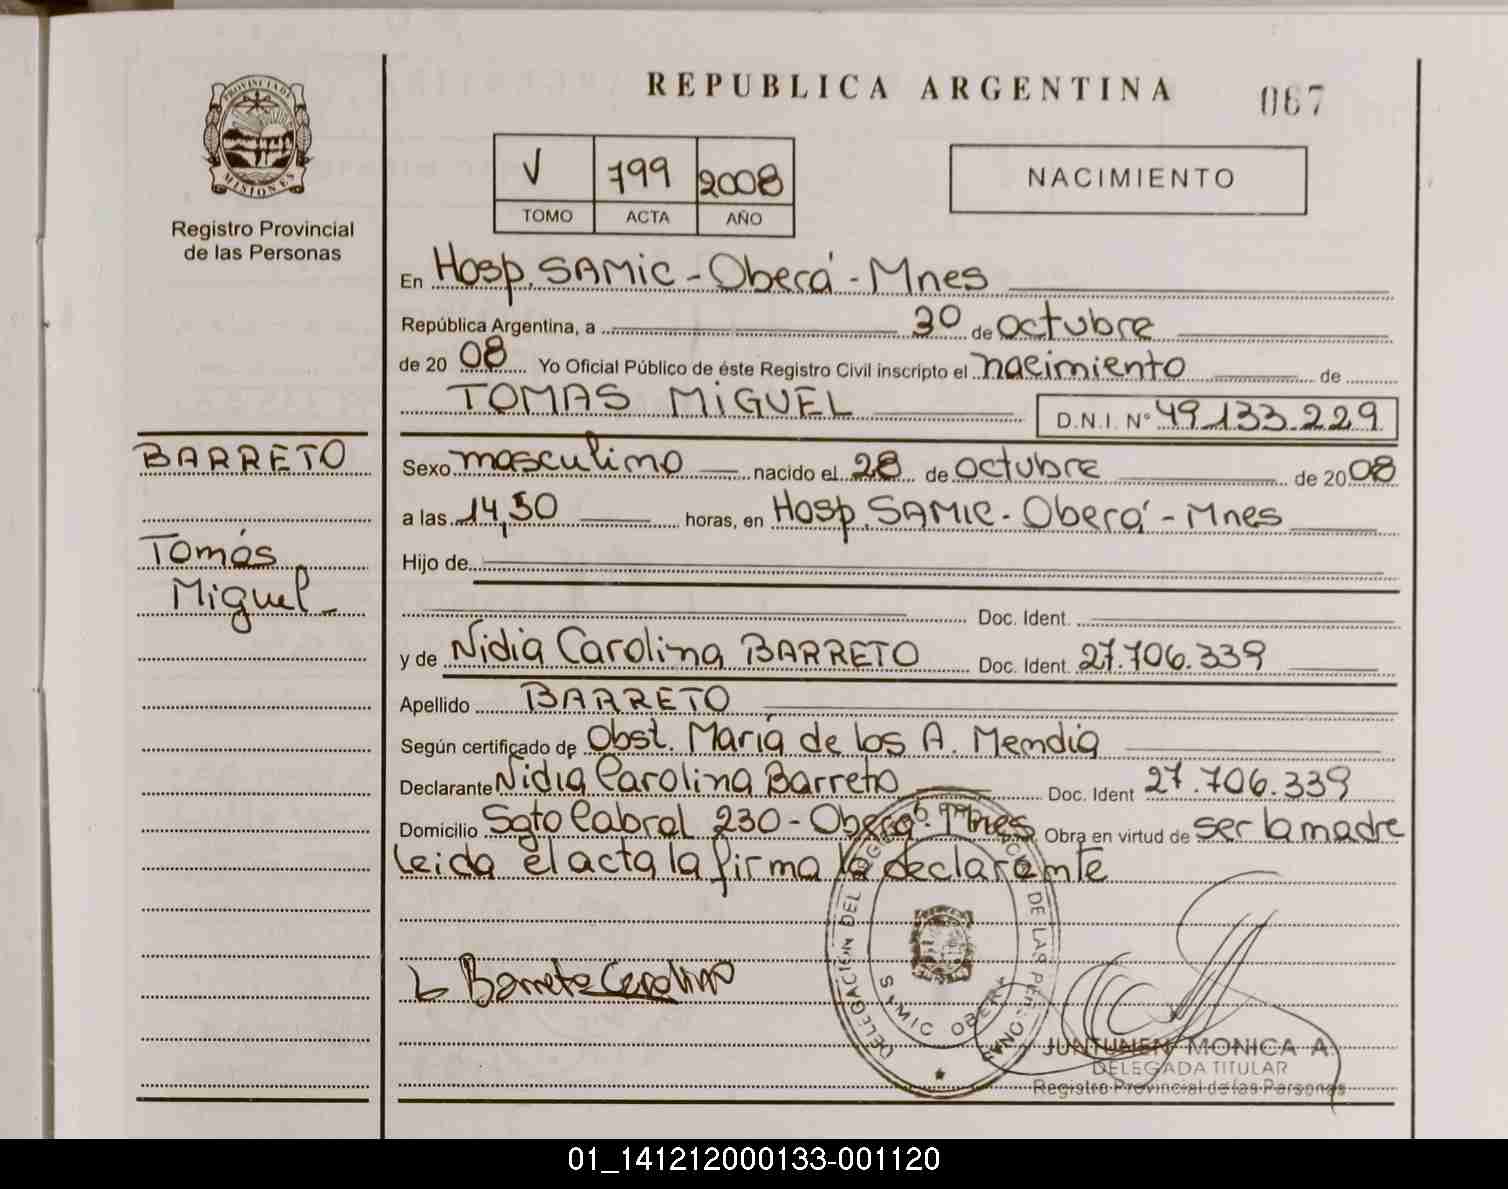 REPUBLICA ARGENTINA
067
PROVINCIA DE MISIONES
Registro Provincial
de las Personas
V 799 2008
TOMO ACTA AÑO
NACIMIENTO
En Hosp. SAMIC - Oberá - Mnes
República Argentina, a 30 de octubre
de 2008 Yo Oficial Público de éste Registro Civil inscripto el nacimiento de
TOMAS MIGUEL D.N.I. Nº 49.133.229
BARRETO
Tomás
Miguel
Sexo masculino nacido el 28 de octubre de 2008
a las 14,50 horas, en Hosp. SAMIC - Oberá - Mnes
Hijo de
Doc. Ident.
y de Nidia Carolina BARRETO Doc. Ident. 27.706.339
Apellido BARRETO
Según certificado de Obst. María de los A. Mendia
Declarante Nidia Carolina Barreto Doc. Ident 27.706.339
Domicilio Sgto Cabral 230 - Oberá - Mnes Obra en virtud de ser la madre
Leida el acta la firma la declarante
Barreto Carolina
DELEGACION DEL DE LAS PERSONAS
SAMIC OBERA
JUNTUNEN MONICA A.
DELEGADA TITULAR
Registro Provincial de las Personas
01_141212000133-001120